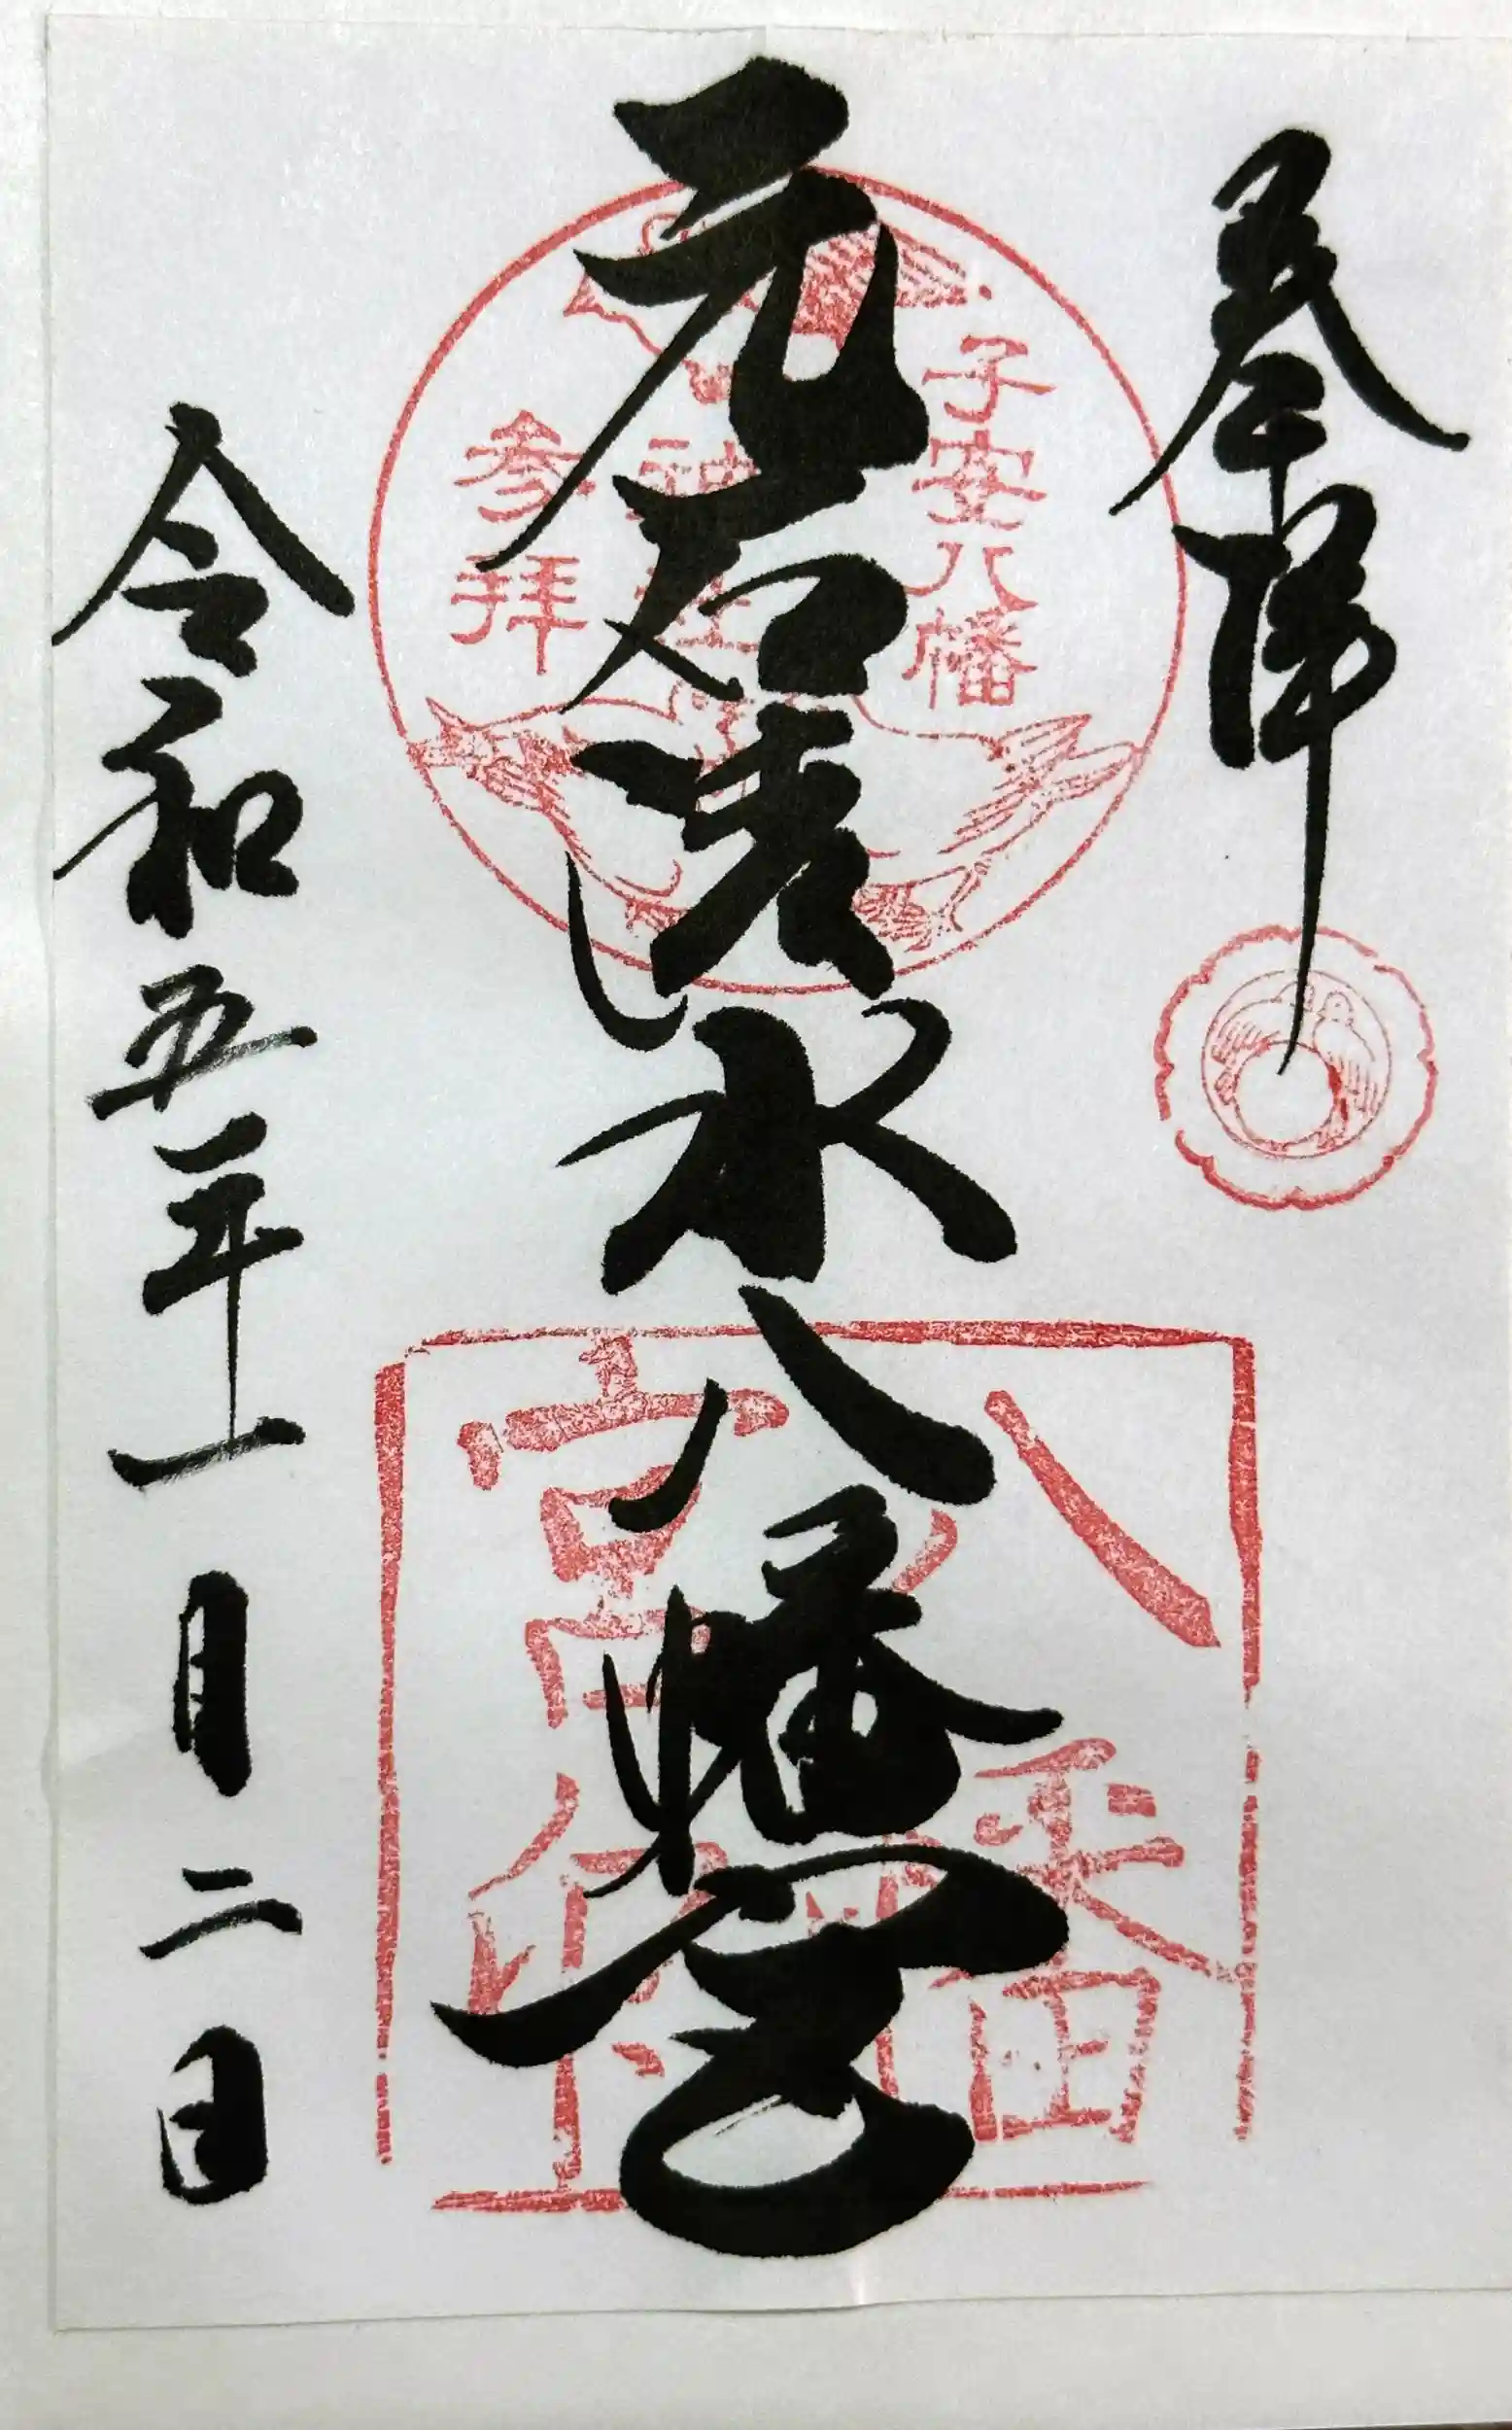 奉拝
元石清水八幡宮
令和五年一月二日
子安八幡
神社
参拝
八幡
宮印